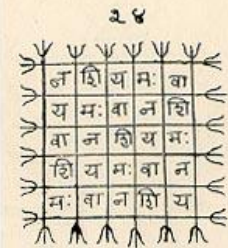 २४
न शि य मः वा
य मः वा न शि
वा न शि य मः
शि य मः वा न
मः वा न शि य